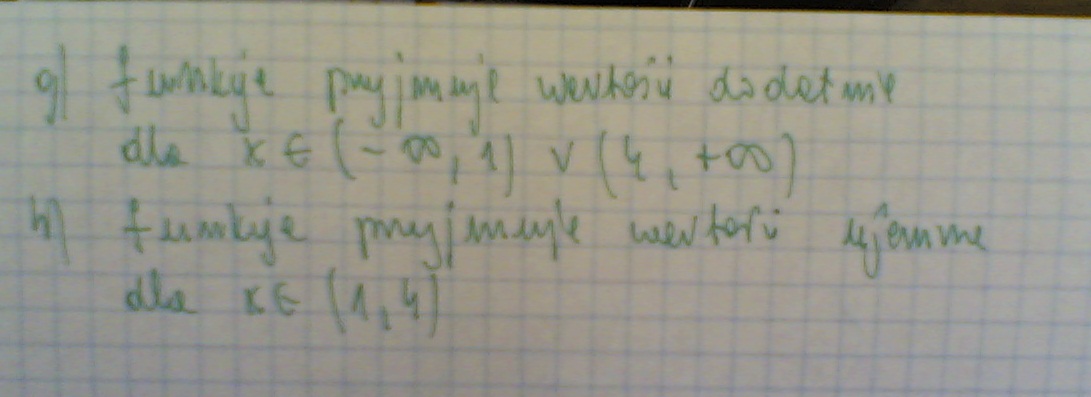 g) funkcja przyjmuje wartości dodatnie
dla x ∈ (-∞, 1) ∨ (4, +∞)
h) funkcja przyjmuje wartości ujemne
dla x ∈ (1, 4)